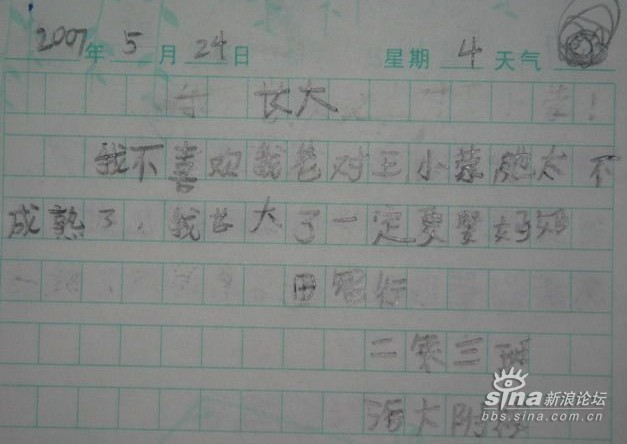 2007年5月24日 星期4天气
长大
我不喜欢我爸对王小 太不
成熟了，我长大了一定要 好
田 行
二年三班
海大附
sina新浪论坛
bbs.sina.com.cn